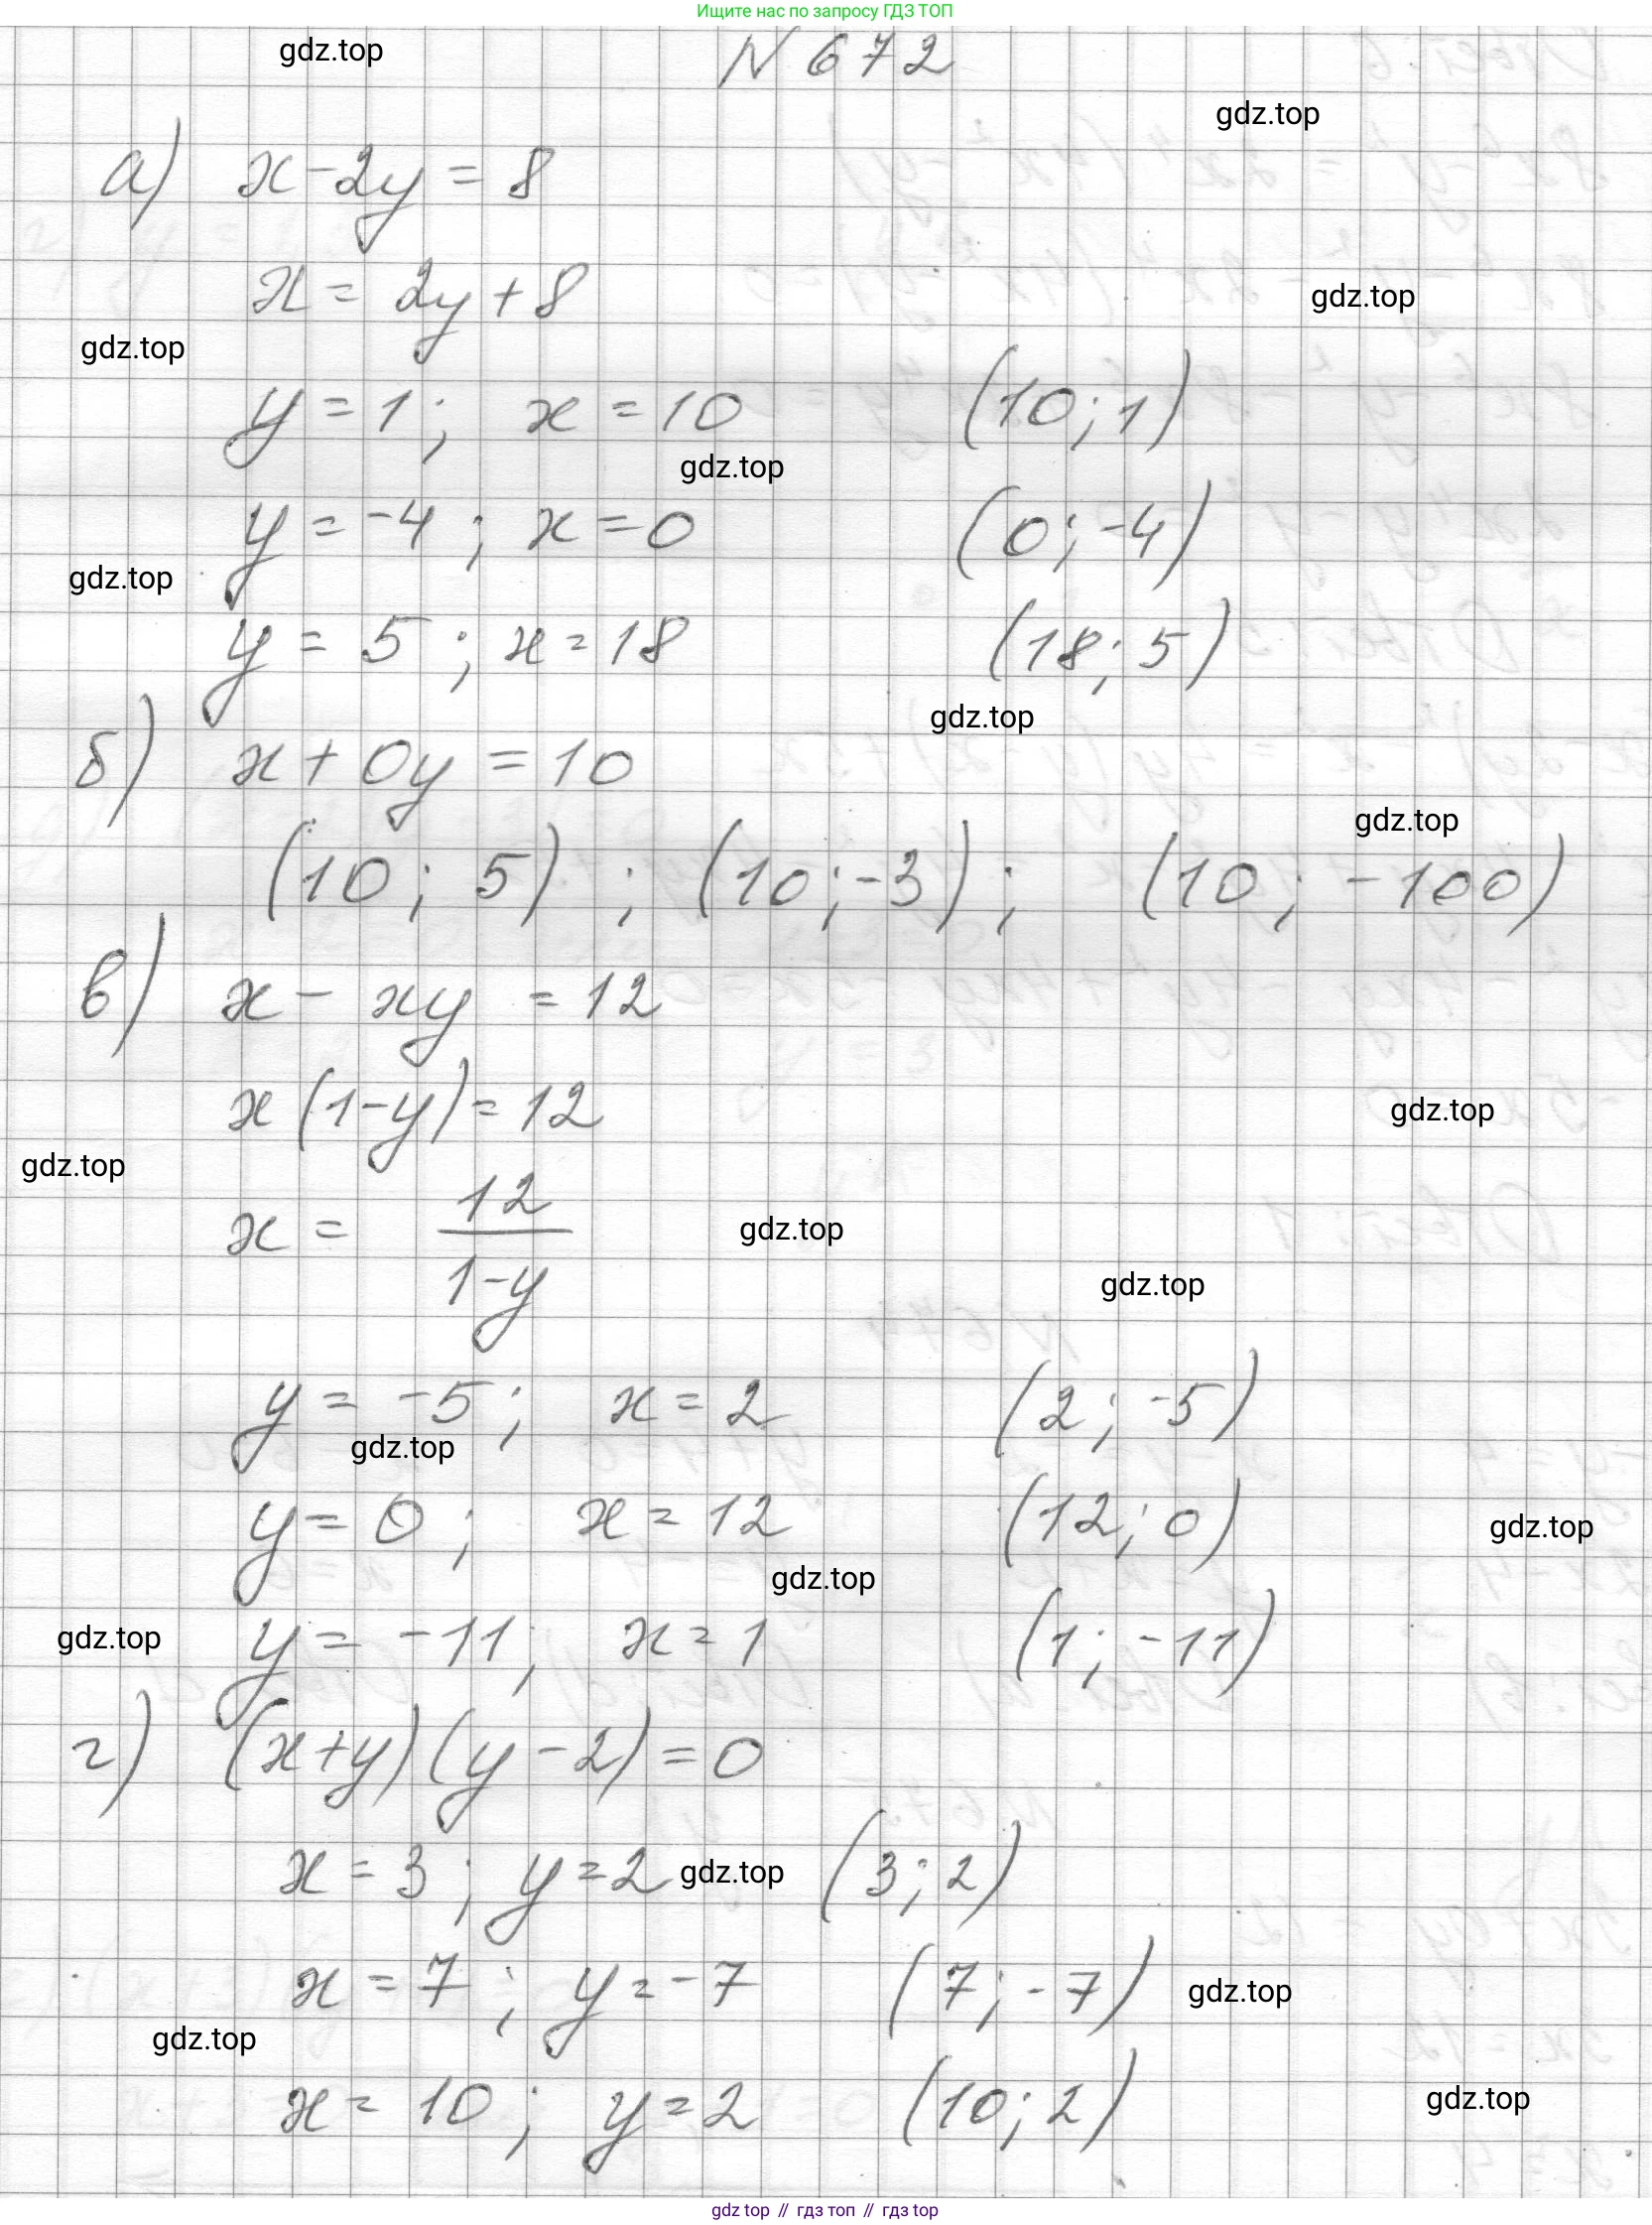 Ищите нас по запросу ГДЗ ТОП
gdz.top
N 672
gdz.top
а) x-2y=8
x= 2y+8
gdz.top
gdz.top
y=1; x=10 (10;1)
gdz.top
y=-4; x=0 (0;-4)
gdz.top
y=5; x=18 (18;5)
gdz.top
б) x+0y=10
gdz.top
(10; 5) ; (10;-3); (10; -100)
в) x- xy =12
x(1-y)=12
gdz.top
gdz.top
x= 12/(1-y)
gdz.top
gdz.top
y= -5; x=2 (2; -5)
gdz.top
y= 0; x=12 (12; 0)
gdz.top
gdz.top
y= -11; x=1 (1; -11)
gdz.top
г) (x+y)(y-2)=0
x=3; y=2 (3; 2)
gdz.top
x=7; y=-7 (7; -7)
gdz.top
gdz.top
x=10; y=2 (10; 2)
gdz.top
gdz top // гдз топ // гдз top